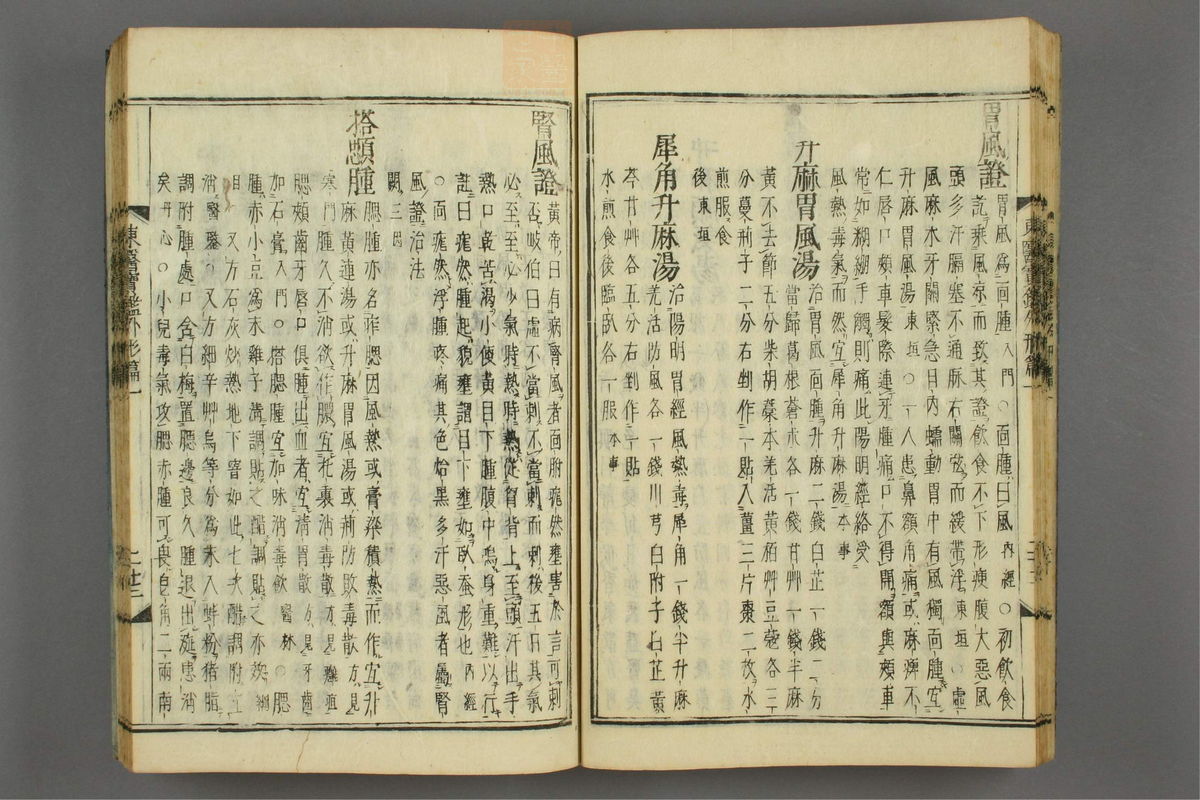 胃風證
胃風爲面腫入門○面腫曰風內經○初飲食
訖乘風凉而致其證飲食不下形瘦腹大惡風
頭多汗膈塞不通脉右關弦而緩帶浮東垣○虛
風麻木牙關緊急目內蠕動胃中有風獨面腫宜
升麻胃風湯東垣○一人患鼻額角痛或麻痺不
仁唇口頰車髮際連牙腫痛口不得開額與頰車
常如糊綳手觸則痛此陽明經絡受
風熱毒氣而然宜犀角升麻湯本事
升麻胃風湯
治胃風面腫升麻二錢白芷一錢二分
當歸葛根蒼朮各一錢甘艸一錢半麻
黃不去節五分柴胡藁本羌活黃栢艸豆蔻各三
分蔓荊子二分右剉作一貼入薑三片棗二枚水
煎服食
後東垣
犀角升麻湯
治陽明胃經風熱毒犀角一錢半升麻
羌活防風各一錢川芎白附子白芷黃
芩甘艸各五分右剉作一貼
水煎食後臨臥各一服本事
腎風證
黃帝曰有病腎風者面胕痝然壅害於言可刺
否岐伯曰虛不當刺不當刺而刺後五日其氣
必至至必少氣時熱時熱從胷背上至頭汗出手
熱口乾苦渴小便黃目下腫腹中鳴身重難以行
註曰痝然腫起貌壅謂目下壅如臥蚕形也內經
○面痝然浮腫疼痛其色炲黑多汗惡風者屬腎
風證治法
闕三因
搭顋腫
腮腫亦名痄腮因風熱或膏粱積熱而作宜升
麻黃連湯或升麻胃風湯或荊防敗毒散方見
寒門腫久不消欲作膿宜托裏消毒散方見癰疽
腮頰齒牙唇口俱腫出血者宜淸胃散方見牙齒
加石膏入門○搭腮腫宜加味消毒飮醫林○腮
腫赤小豆爲末雞子淸調貼之醋調貼之亦效綱
目又方石灰炒熱地下窨如此七次醋調附立
消醫鑒○又方細辛艸烏等分爲末入蚌粉猪脂
調附腫處口含白梅置腮邊良久腫退出涎患消
矣丹心○小兒毒氣攻腮赤腫可畏皂角二兩南
東醫寶鑑外形篇一
東醫寶鑑外形篇一